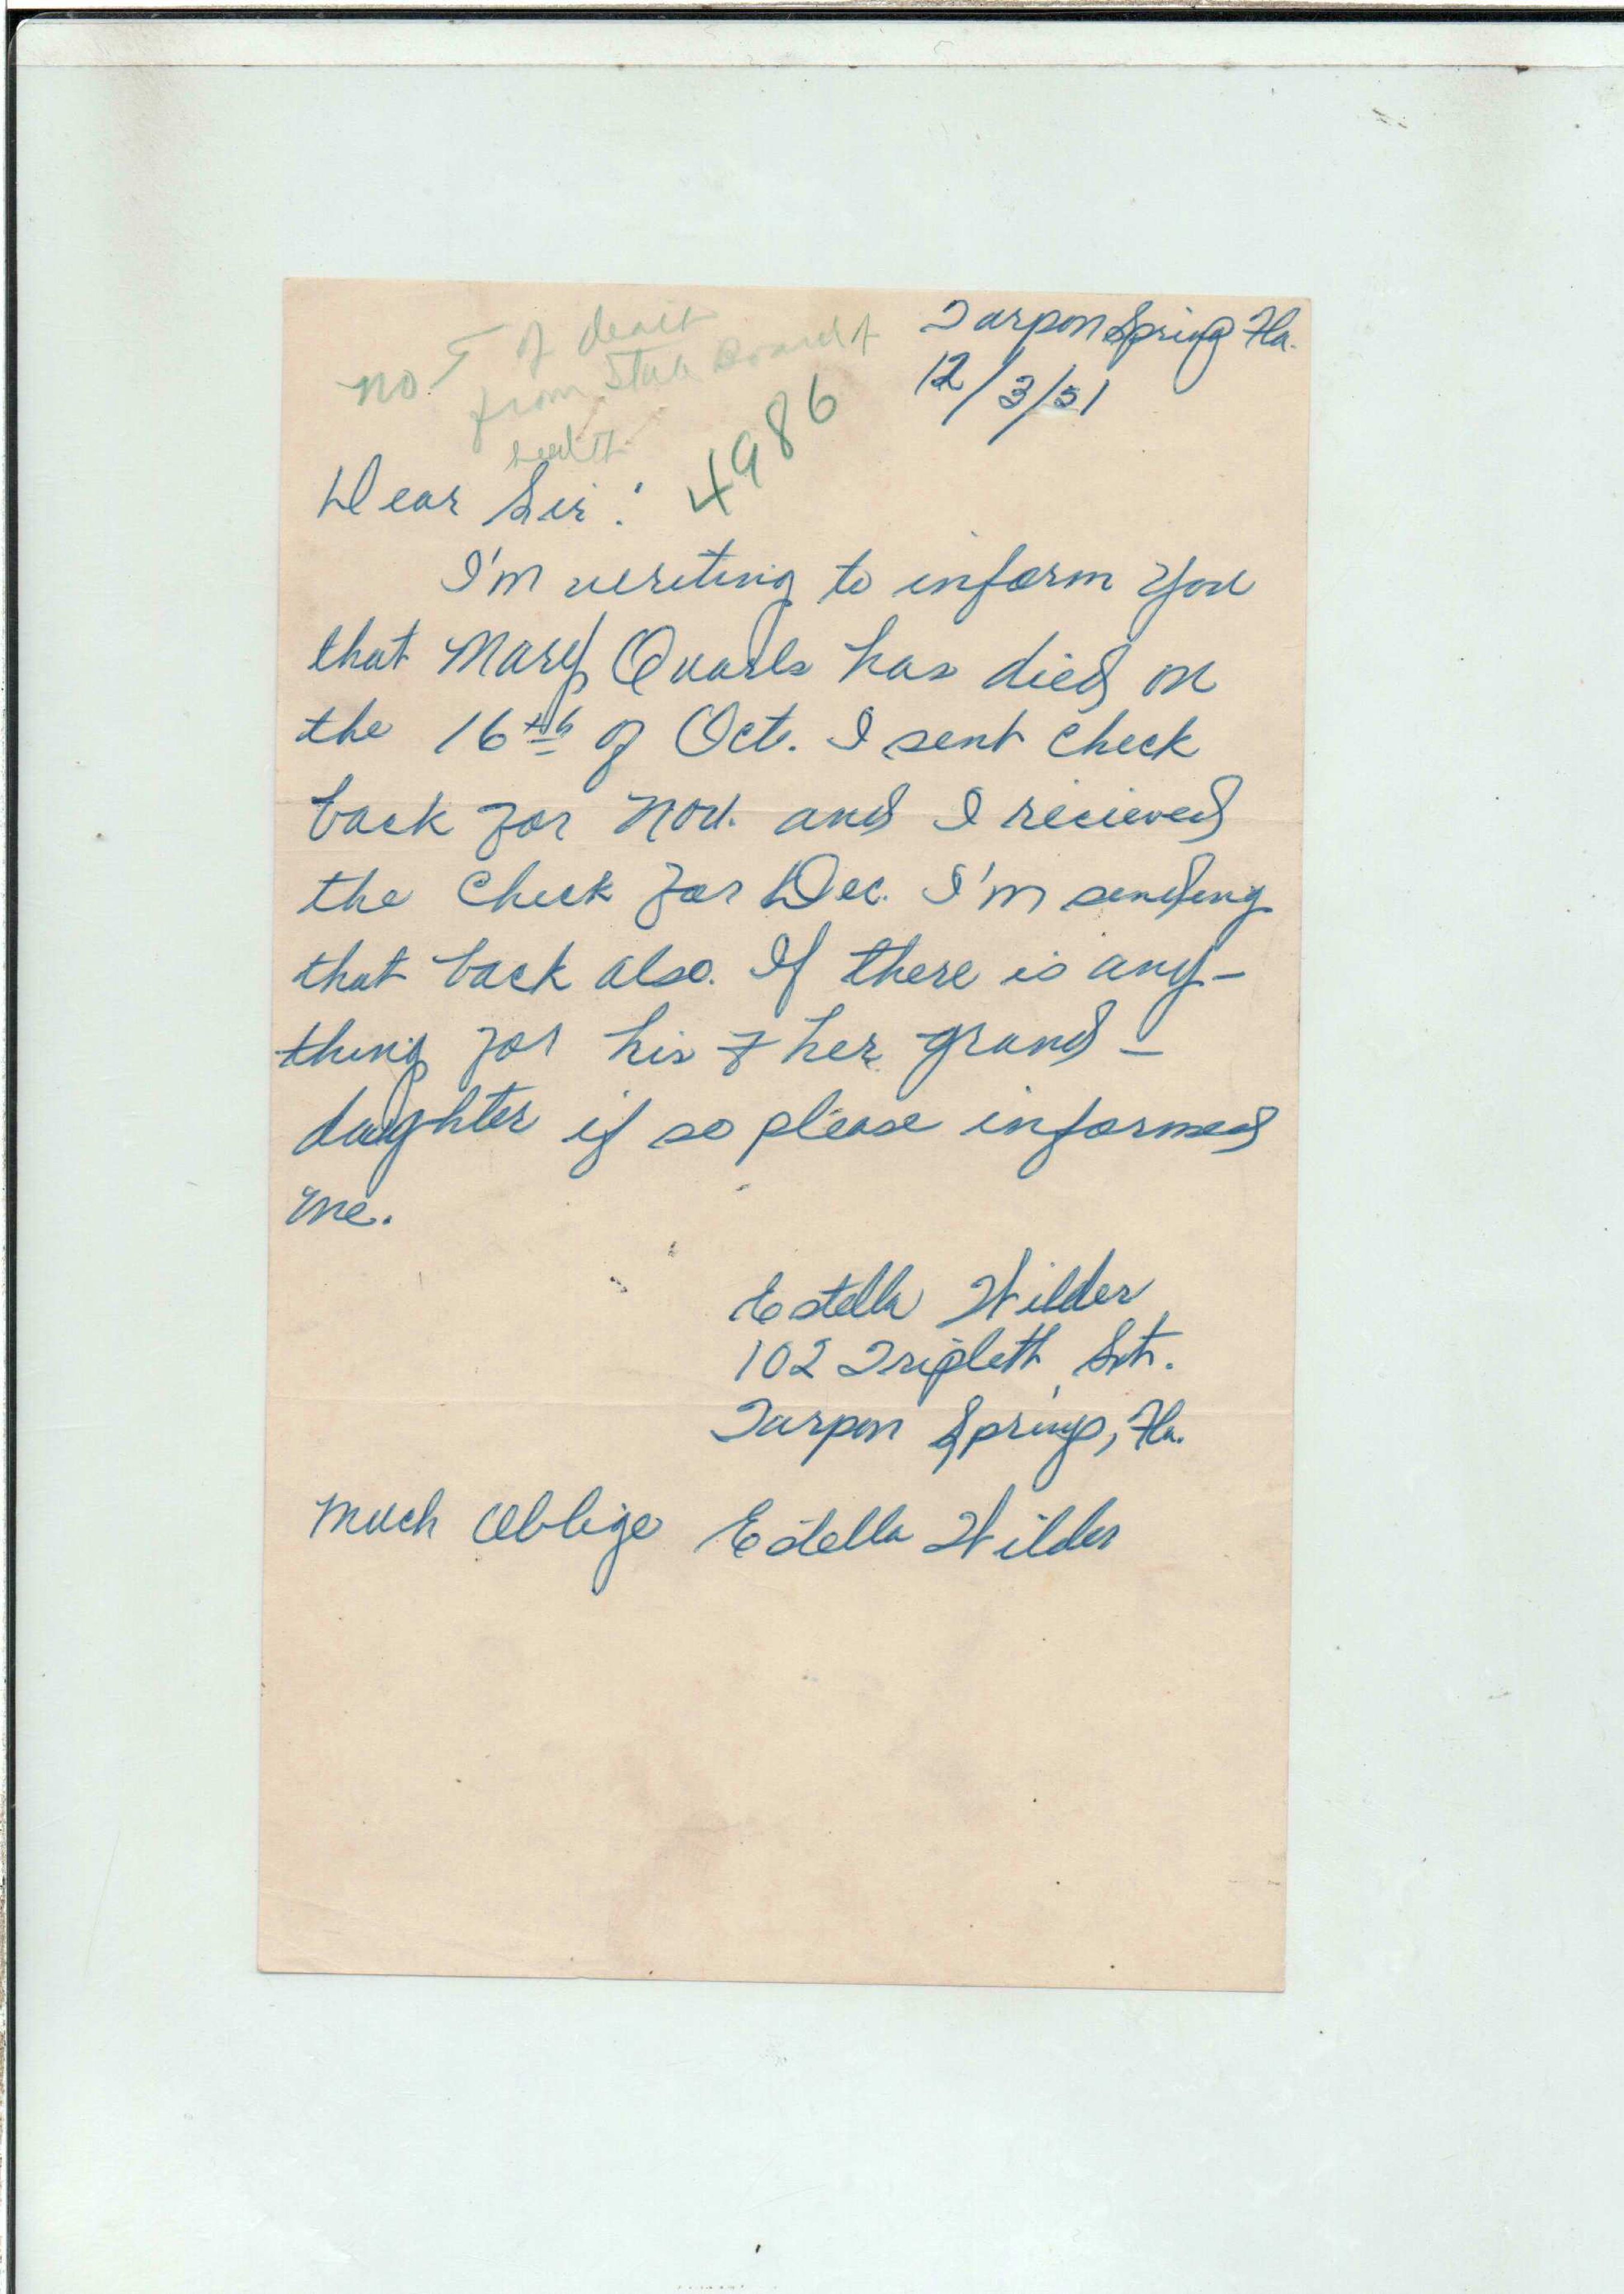 Tarpon Spring Fla.
12/3/51
no of deait
from State Board of
health
4986
Dear Sir:
I'm writing to inform you
that Mary Quarls has died on
the 16th of Oct. I sent check
back for Nov. and I recieved
the check for Dec. I'm sending
that back also. If there is any-
thing for his & her grand-
daughter if so please informed
me.
Estella Wilder
102 Tripleth Str.
Tarpon Springs, Fla.
Much Oblige Estella Wilder